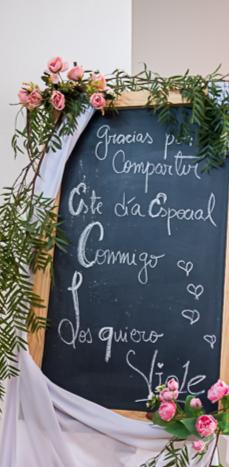 Gracias por
Compartir
Este día Especial
Conmigo
Los quiero